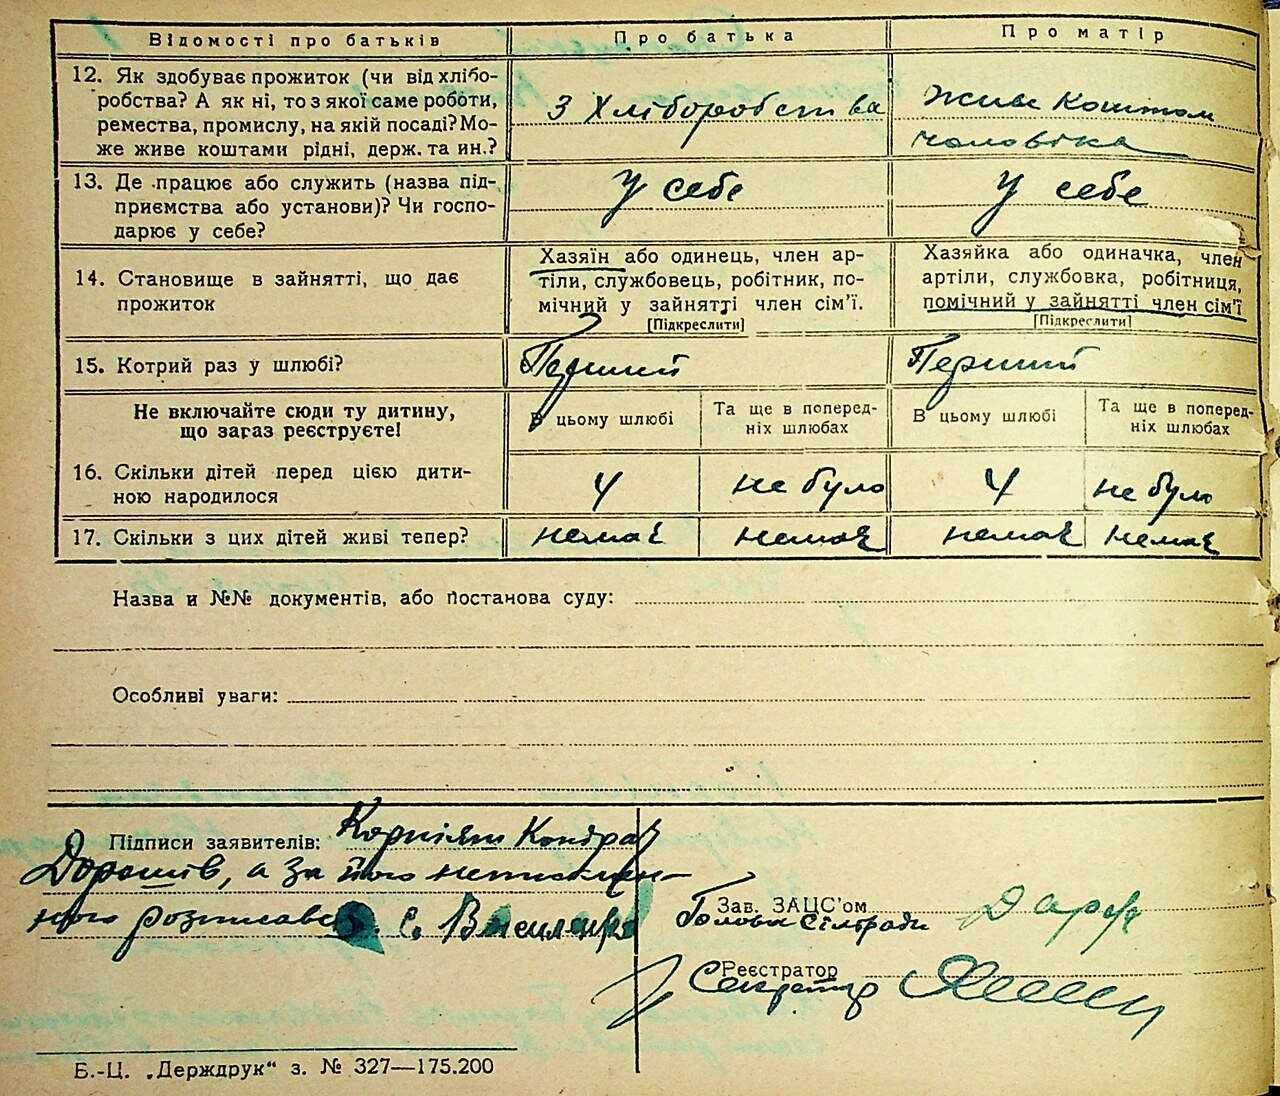 Відомості про батьків Про батька Про матір
12. Як здобуває прожиток (чи від хлібо-
робства? А як ні, то з якої саме роботи,
ремества, промислу, на якій посаді? Мо-
же живе коштами рідні, держ. та ин.?
З Хліборобства
живе коштом
чоловіка
13. Де працює або служить (назва під-
приємства або установи)? Чи госпо-
дарює у себе?
У себе
У себе
14. Становище в зайнятті, що дає
прожиток
Хазяїн або одинець, член ар-
тіли, службовець, робітник, по-
мічний у зайнятті член сім'ї.
[Підкреслити]
Хазяйка або одиначка, член
артіли, службовка, робітниця,
помічний у зайнятті член сім'ї
[Підкреслити]
15. Котрий раз у шлюбі?
Перший
Перший
Не включайте сюди ту дитину,
що зараз реєструєте!
В цьому шлюбі
Та ще в поперед-
ніх шлюбах
В цьому шлюбі
Та ще в поперед-
ніх шлюбах
16. Скільки дітей перед цією дити-
ною народилося
4 не було 4 не було
17. Скільки з цих дітей живі тепер? немає немає немає немає
Назва и №№ документів, або постанова суду:
Особливі уваги:
Підписи заявителів: Корніян Кондрат
Дорошів, а за його неписмен-
ного розписавсь С. Василенко
Зав. ЗАЦС'ом
Голова Сільради
Реєстратор
Секретар
Б.-Ц. „Держдрук“ з. № 327—175.200